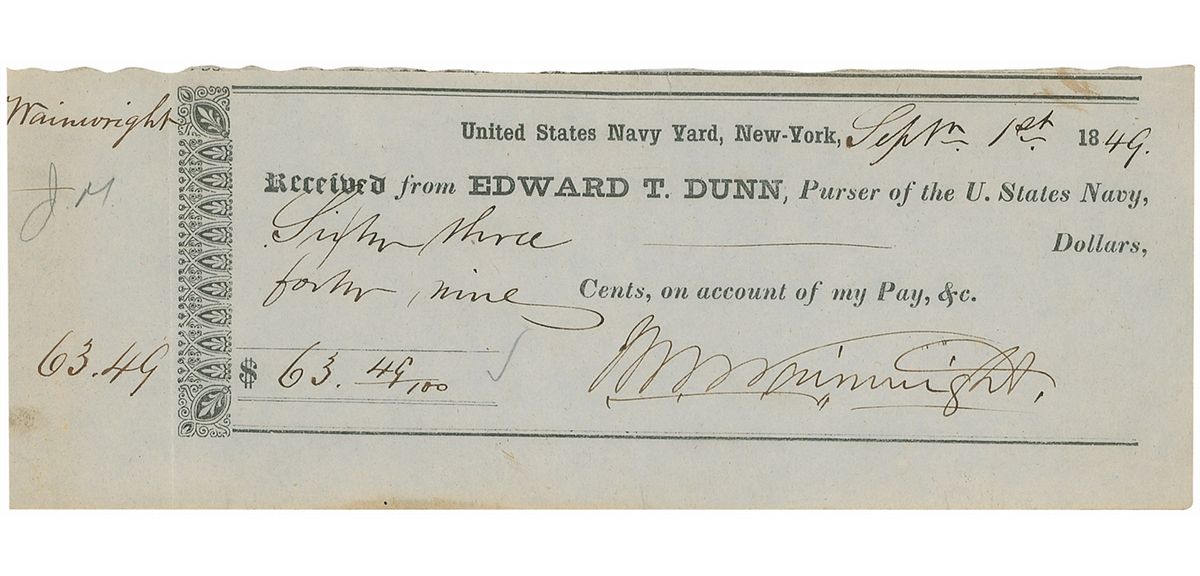 Wainwright
United States Navy Yard, New-York, Septm 1st 1849.
J M.
Received from EDWARD T. DUNN, Purser of the U. States Navy,
Sixty three Dollars,
forty nine Cents, on account of my Pay, &c.
63.49
$ 63. 49/100
Wainwright.